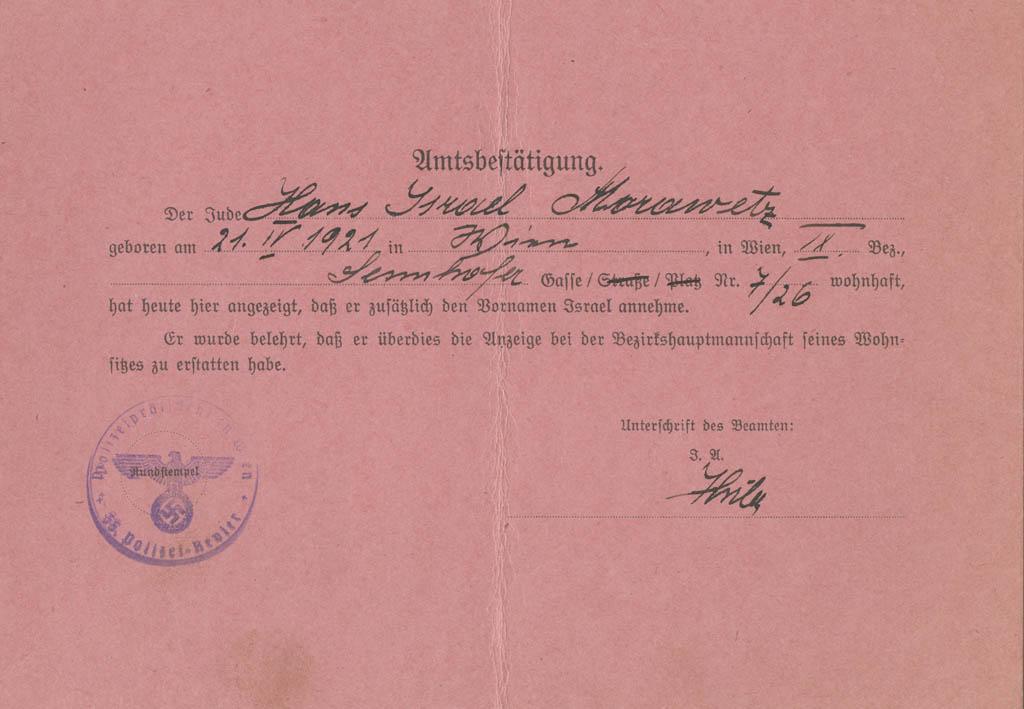 Amtsbestätigung.
Der Jude Hans Israel Morawetz
geboren am 21. IV 1921 in Wien, in Wien, IX. Bez.,
Gasse / Straße / Platz Nr. 7/26 wohnhaft,
hat heute hier angezeigt, daß er zusätzlich den Vornamen Israel annehme.
Er wurde belehrt, daß er überdies die Anzeige bei der Bezirkshauptmannschaft seines Wohn-
sitzes zu erstatten habe.
Unterschrift des Beamten:
I. A.
Rundstempel
Polizei-Revier